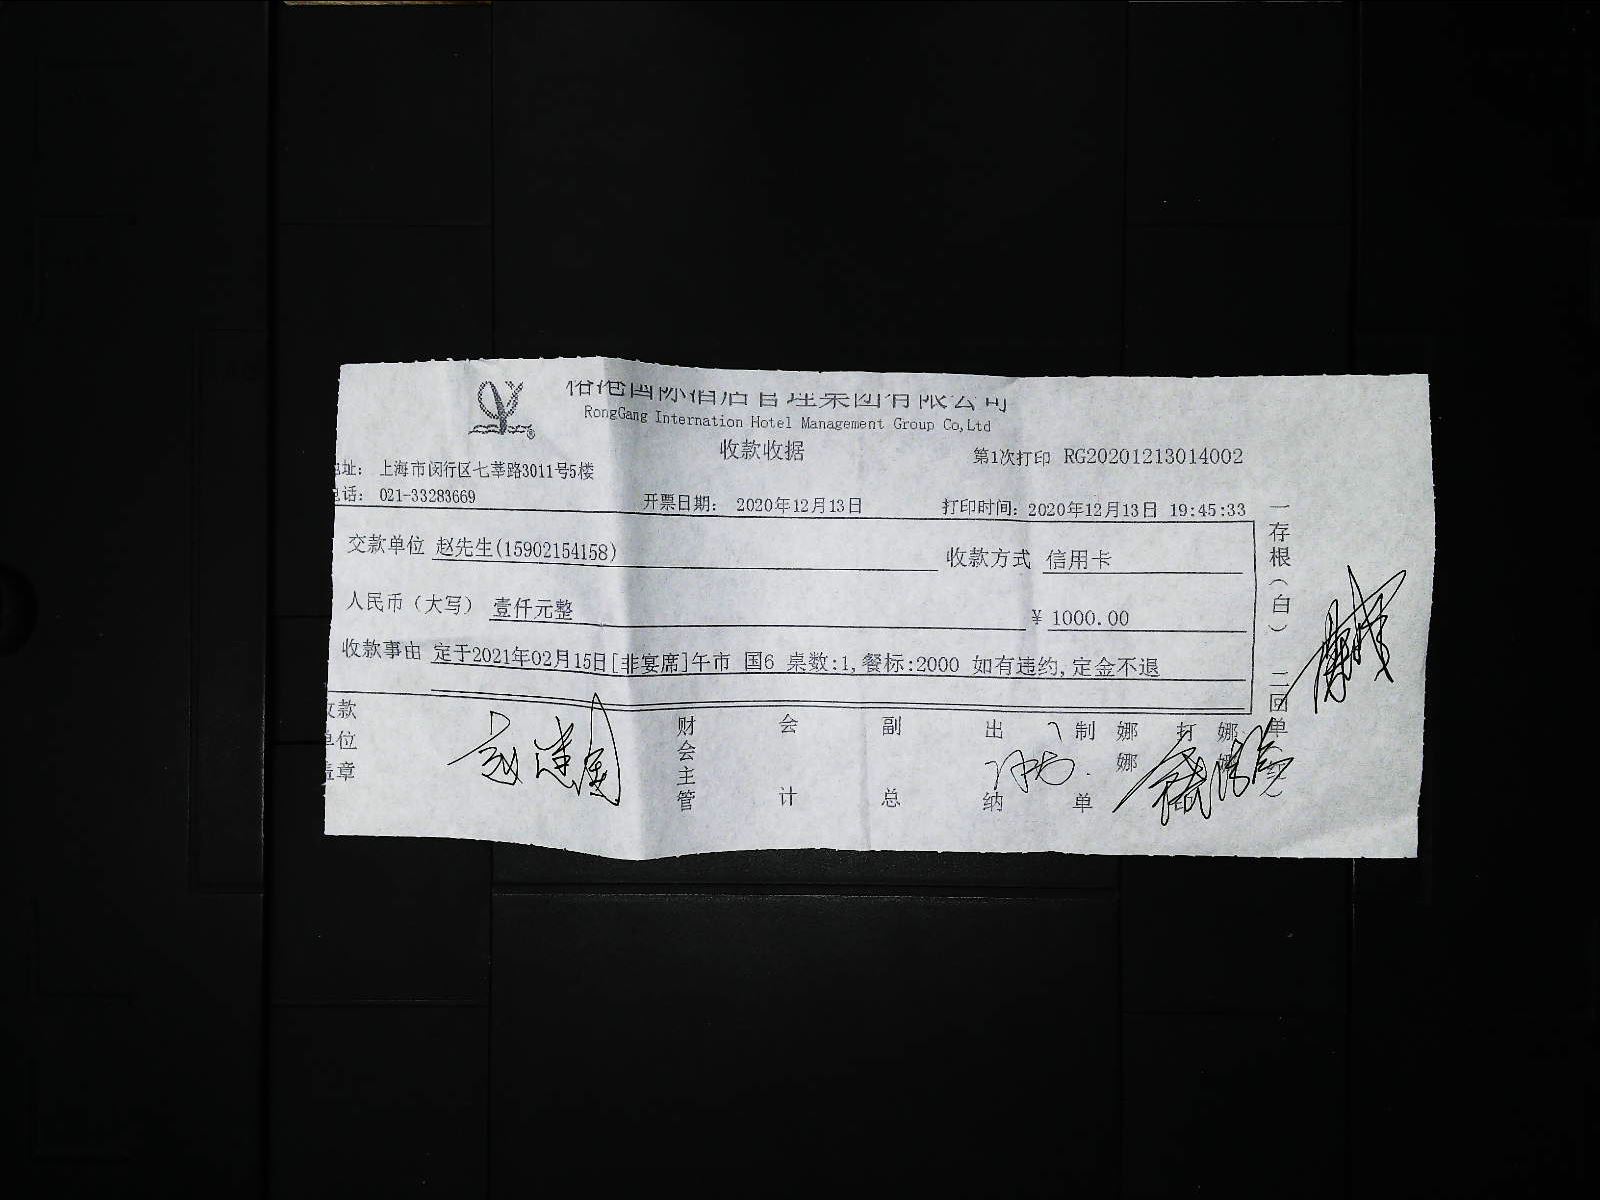 国际酒店管理集团有限公司
RongGang Internation Hotel Management Group Co,Ltd
收款收据
第1次打印 RG20201213014002
地址： 上海市闵行区七莘路3011号5楼
电话： 021-33283669
开票日期： 2020年12月13日
打印时间：2020年12月13日 19:45:33
交款单位 赵先生(15902154158)
收款方式 信用卡
人民币（大写） 壹仟元整
¥ 1000.00
收款事由 定于2021年02月15日[非宴席]午市 国6 桌数:1,餐标:2000 如有违约,定金不退
一存根（白） 二回单
收款
单位
盖章
赵建国
财会主管
会计
副总
出纳
制单
娜娜
打
娜